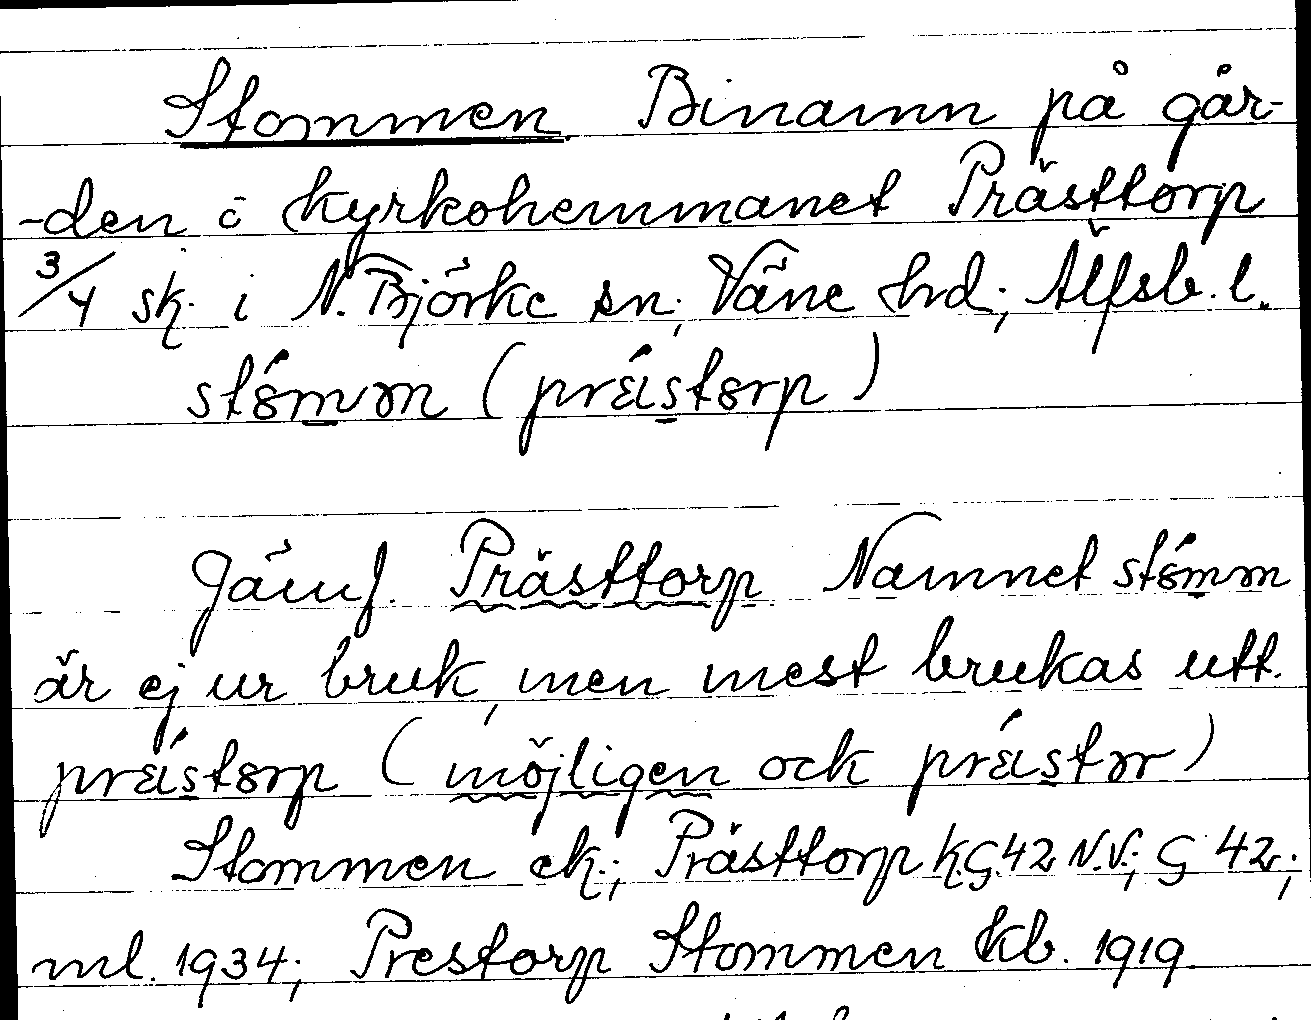 Stommen. Binamn på går-
-den i kyrkohemmanet Prästtorp
3/4 sk. i N. Björke sn; Väne hrd; Älfsb. l.
stómmən (préistorp)
Jämf. Prästtorp Namnet stómmən
är ej ur bruk, men mest brukas utt.
préistorp (möjligen ock préistər)
Stommen ek.; Prästtorp K.G.42 N.V.; G 42;
ml. 1934; Prestorp Stommen kb. 1919.